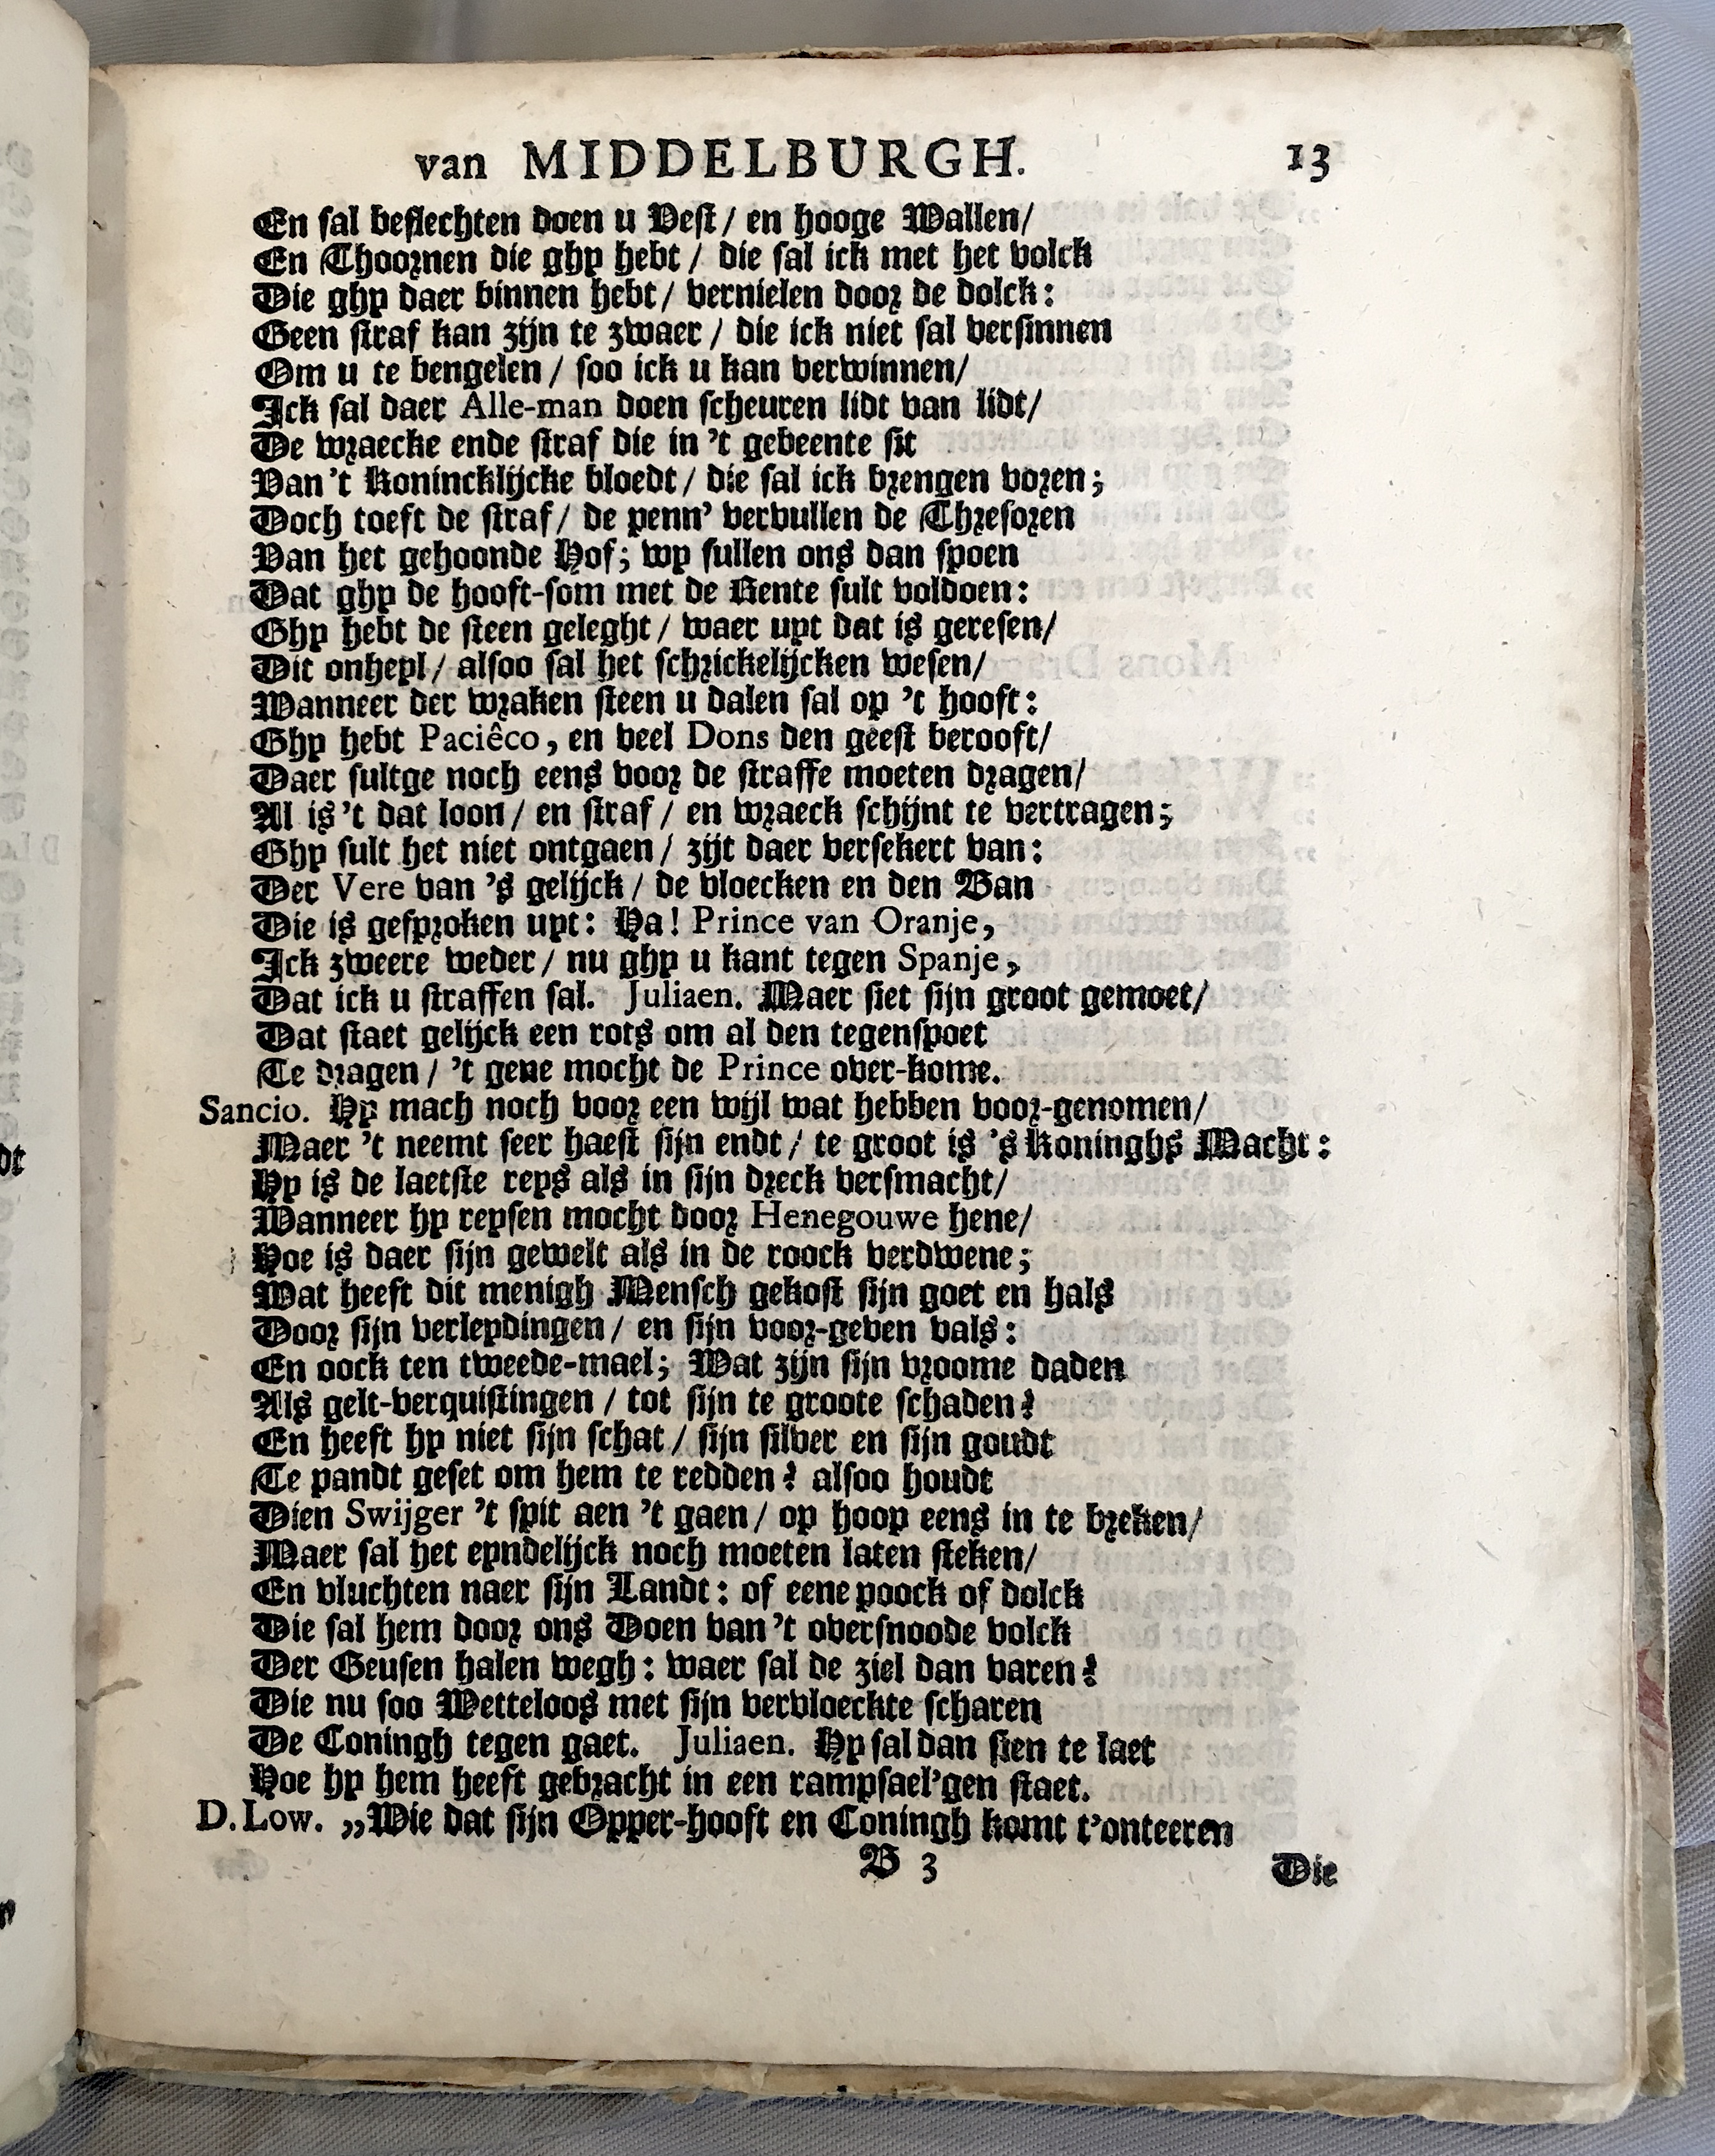 van MIDDELBURGH. 13
En sal beslechten doen u Vest / en hooge Wallen /
En Thoornen die ghy hebt / die sal ick met het volck
Die ghy daer binnen hebt / vernielen door de dolck :
Geen straf kan zijn te zwaer / die ick niet sal versinnen
Om u te bengelen / soo ick u kan verwinnen /
Ick sal daer Alle-man doen scheuren lidt van lidt /
De wraecke ende straf die in 't gebeente sit
Van 't Konincklijcke bloedt / die sal ick brengen voren ;
Doch toeft de straf / de penn' vervullen de Thresoren
Van het gehoonde Hof ; wy sullen ons dan spoen
Dat ghy de hooft-som met de Rente sult voldoen :
Ghy hebt de steen geleght / waer uyt dat is geresen /
Dit onheyl / alsoo sal het schrickelijcken wesen /
Wanneer der wraken steen u dalen sal op 't hooft :
Ghy hebt Paciêco, en veel Dons den geest berooft /
Daer sultge noch eens voor de straffe moeten dragen /
Al is 't dat loon / en straf / en wraeck schijnt te vertragen ;
Ghy sult het niet ontgaen / zijt daer versekert van :
Der Vere van 's gelijck / de vloecken en den Ban
Die is gesproken uyt : Ha ! Prince van Oranje,
Ick zweere weder / nu ghy u kant tegen Spanje,
Dat ick u straffen sal. Juliaen. Maer siet sijn groot gemoet /
Dat staet gelijck een rots om al den tegenspoet
Te dragen / 't gene mocht de Prince over-kome.
Sancio. Hy mach noch voor een wijl wat hebben voor-genomen /
Maer 't neemt seer haest sijn endt / te groot is 's Koninghs Macht :
Hy is de laetste reys als in sijn dreck versmacht /
Wanneer hy reysen mocht door Henegouwe hene /
Hoe is daer sijn gewelt als in de roock verdwene ;
Wat heeft dit menigh Mensch gekost sijn goet en hals
Door sijn verleydingen / en sijn voor-geven vals :
En oock ten tweede-mael ; Wat zijn sijn vroome daden
Als gelt-verquistingen / tot sijn te groote schaden ?
En heeft hy niet sijn schat / sijn silver en sijn goudt
Te pandt geset om hem te redden ? alsoo houdt
Dien Swijger 't spit aen 't gaen / op hoop eens in te breken /
Maer sal het eyndelijck noch moeten laten steken /
En vluchten naer sijn Landt : of eene poock of dolck
Die sal hem door ons Doen van 't oversnoode volck
Der Geusen halen wegh : waer sal de ziel dan varen ?
Die nu soo Wetteloos met sijn vervloeckte scharen
De Coningh tegen gaet. Juliaen. Hy sal dan sien te laet
Hoe hy hem heeft gebracht in een rampsael'gen staet.
D. Low. „Wie dat sijn Opper-hooft en Coningh komt t'onteeren
B 3 Die